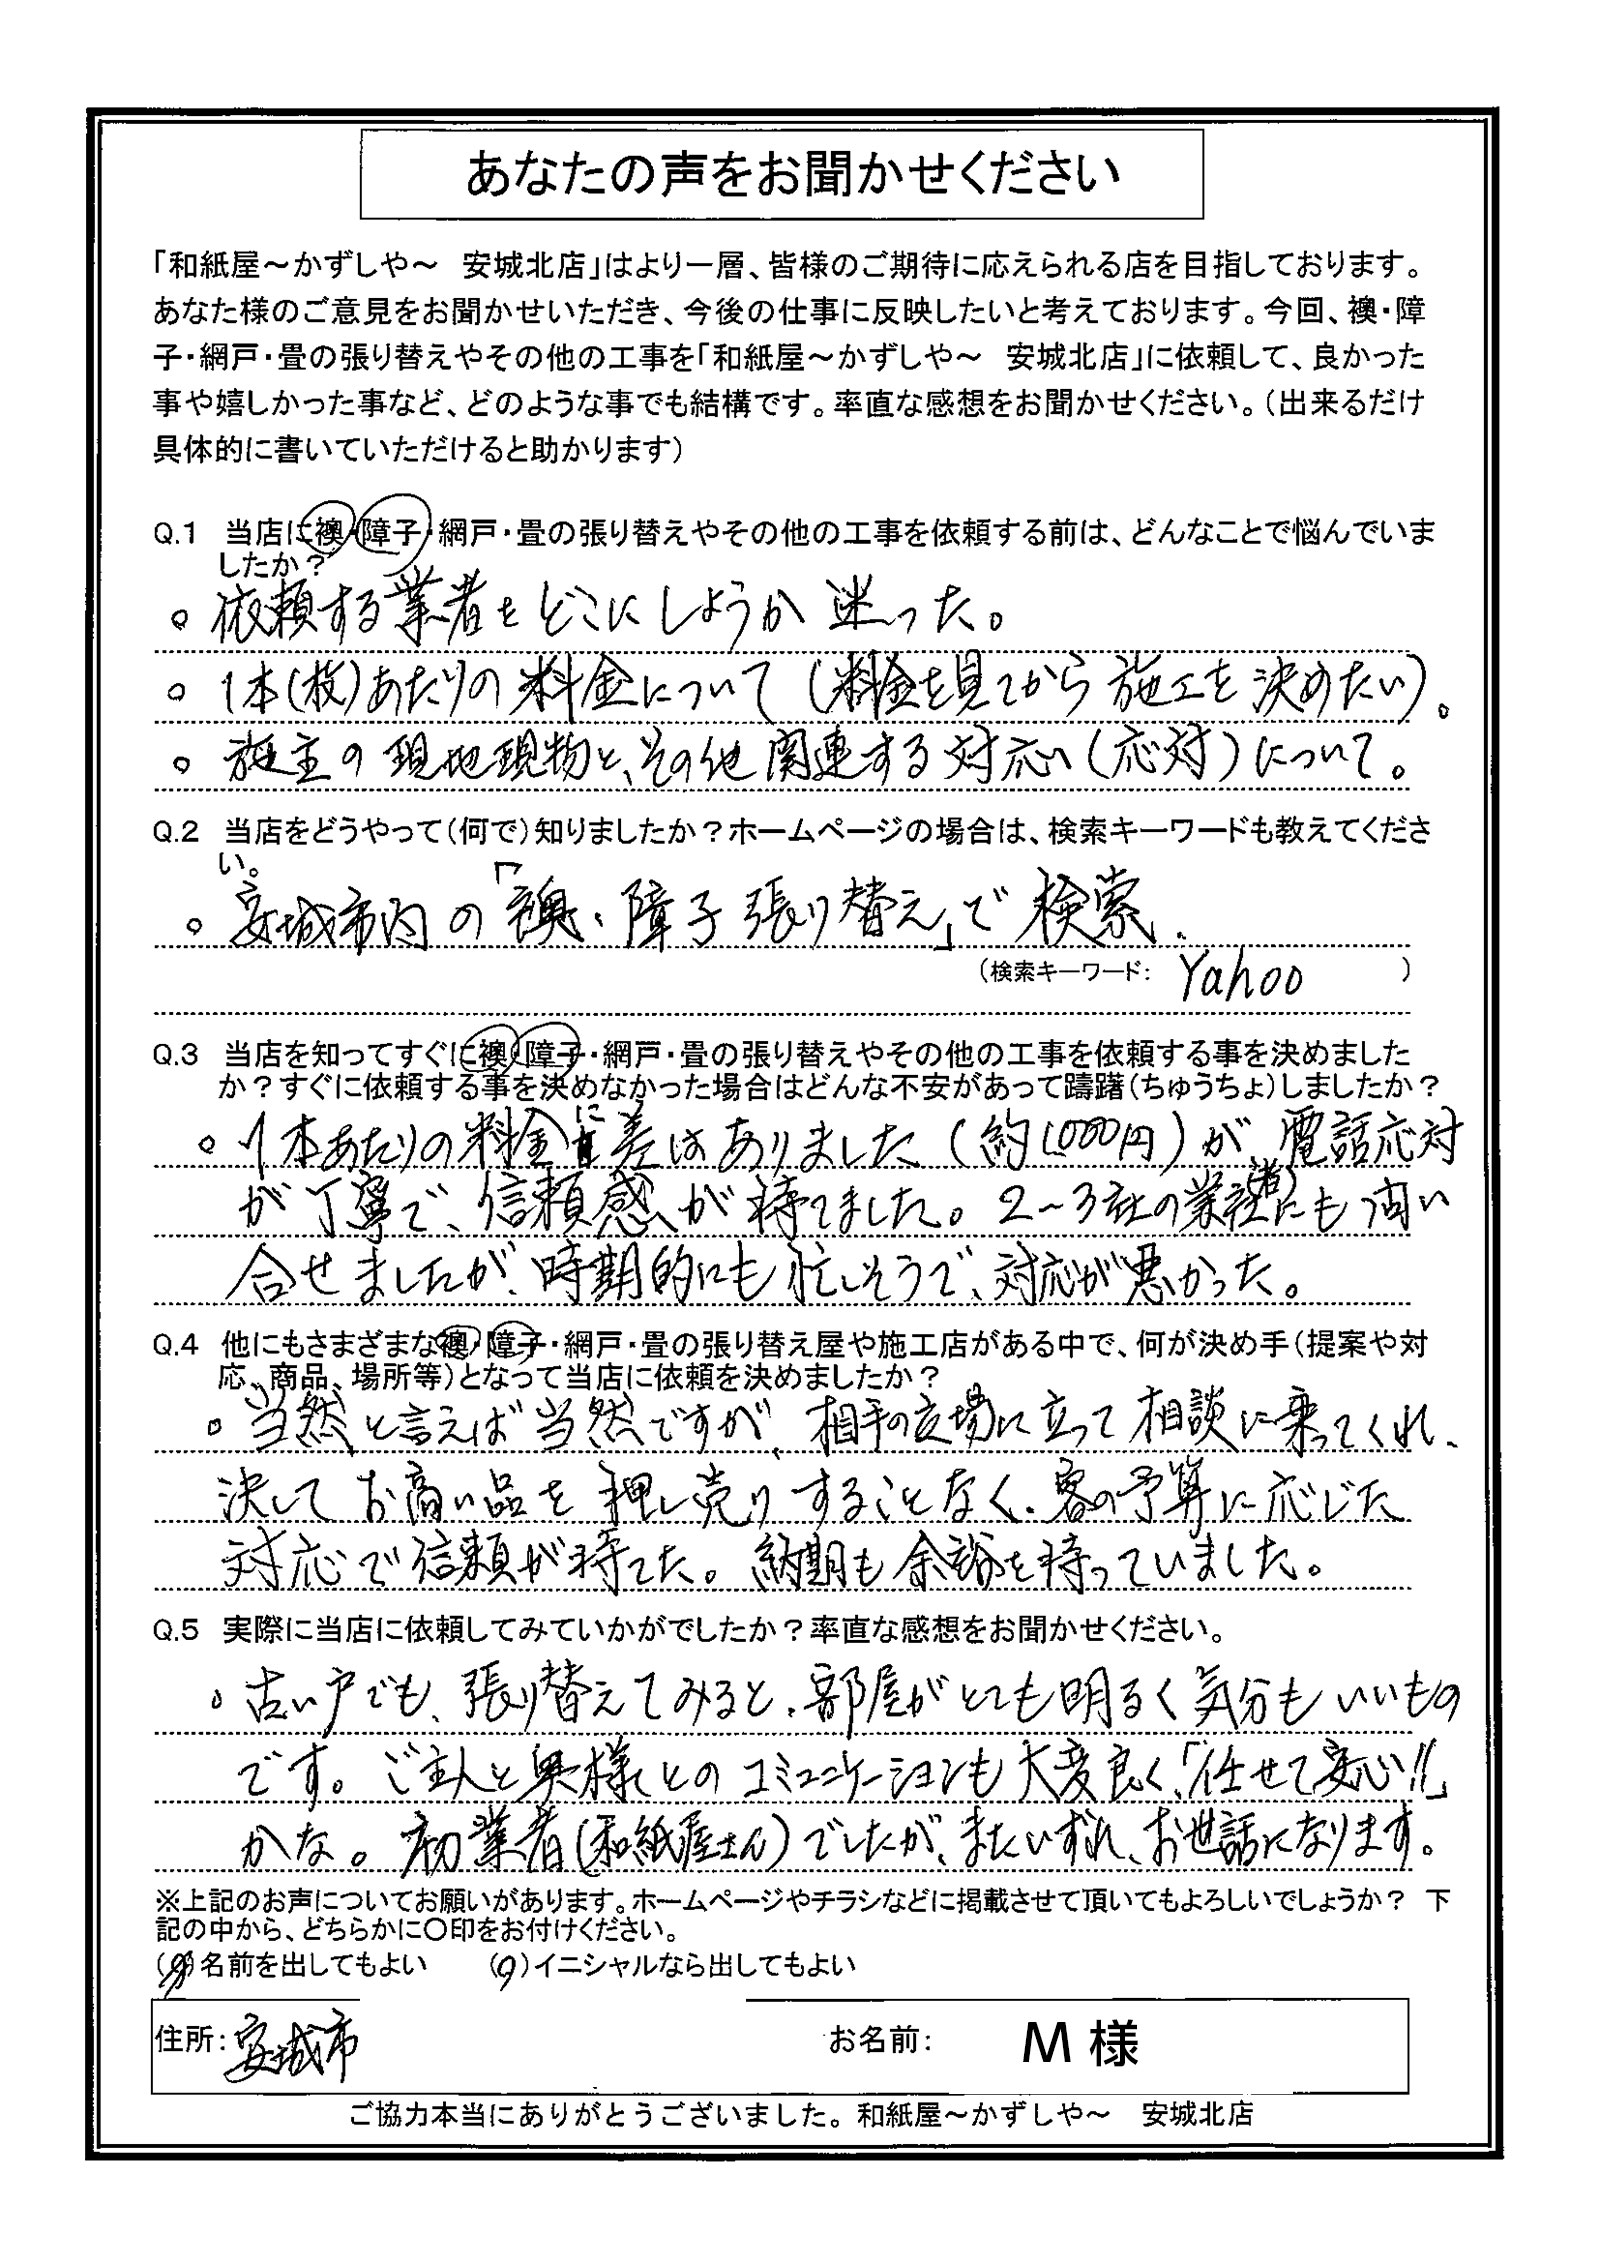 あなたの声をお聞かせください
「和紙屋～かずしや～　安城北店」はより一層、皆様のご期待に応えられる店を目指しております。
あなた様のご意見をお聞かせいただき、今後の仕事に反映したいと考えております。今回、襖・障
子・網戸・畳の張り替えやその他の工事を「和紙屋～かずしや～　安城北店」に依頼して、良かった
事や嬉しかった事など、どのような事でも結構です。率直な感想をお聞かせください。（出来るだけ
具体的に書いていただけると助かります）
Q.1　当店に襖・障子・網戸・畳の張り替えやその他の工事を依頼する前は、どんなことで悩んでいま
したか？
。依頼する業者をどこにしようか迷った。
。1本(枚)あたりの料金について（料金を見てから施工を決めたい）。
。施主の現地現物と、その他関連する対応（応対）について。
Q.2　当店をどうやって（何で）知りましたか？ホームページの場合は、検索キーワードも教えてくださ
い。
。安城市内の「襖、障子張り替え」で検索.
（検索キーワード：Yahoo）
Q.3　当店を知ってすぐに襖・障子・網戸・畳の張り替えやその他の工事を依頼する事を決めました
か？すぐに依頼する事を決めなかった場合はどんな不安があって躊躇（ちゅうちょ）しましたか？
。1本あたりの料金に差はありました（約1,000円）が、電話応対
が丁寧で、信頼感が持てました。2～3社の業社(者)にも問い
合せましたが、時期的にも忙しそうで、対応が悪かった。
Q.4　他にもさまざまな襖・障子・網戸・畳の張り替え屋や施工店がある中で、何が決め手（提案や対
応、商品、場所等）となって当店に依頼を決めましたか？
。当然と言えば当然ですが、相手の立場に立って相談に乗ってくれ、
決してお高い品を押し売りすることなく、客の予算に応じた
対応で信頼が持てた。納期も余裕を持っていました。
Q.5　実際に当店に依頼してみていかがでしたか？率直な感想をお聞かせください。
。古い戸でも、張り替えてみると、部屋がとても明るく気分もいいもの
です。ご主人と奥様とのコミュニケーションも大変良く、「任せて安心!!」
かな。初業者（和紙屋さん）でしたが、またいずれ、お世話になります。
※上記のお声についてお願いがあります。ホームページやチラシなどに掲載させて頂いてもよろしいでしょうか？　下
記の中から、どちらかに〇印をお付けください。
（　）名前を出してもよい　　（〇）イニシャルなら出してもよい
住所：安城市　　お名前：　M 様
ご協力本当にありがとうございました。和紙屋～かずしや～　安城北店